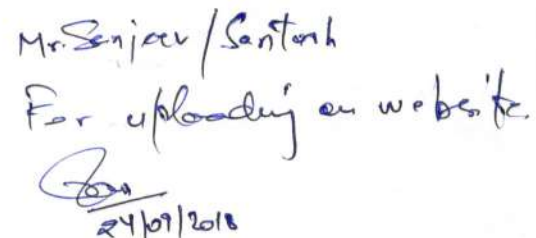 Mr. Sanjeev / Santosh
For uploading on website.
24/09/2018